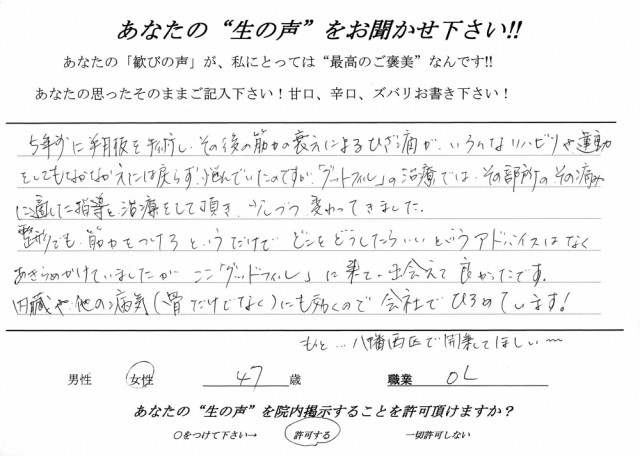 あなたの “生の声” をお聞かせ下さい!!
あなたの「歓びの声」が、私にとっては“最高のご褒美”なんです!!
あなたの思ったそのままご記入下さい！甘口、辛口、ズバリお書き下さい！
5年前に半月板を手術し、その後の筋力の衰えによるひざ痛が、いろんなリハビリや運動
をしてもなかなか元には戻らず！悩んでいたのですが、「グッドフィル」の治療では、その部所の その痛み
に適した指導と治療をして頂き、少しづつ変わってきました。
整形でも、筋力をつけろというだけで どこをどうしたらいいというアドバイスはなく
あきらめかけていましたが ここ「グッドフィル」に来て、出会えて良かったです。
内臓や他の病気(骨だけでなく)にも効くので 会社でひろめています!
もっと…八幡西区で開業してほしい〜
男性 女性 47 歳 職業 OL
あなたの “生の声” を院内掲示することを許可頂けますか？
○をつけて下さい→ 許可する 一切許可しない